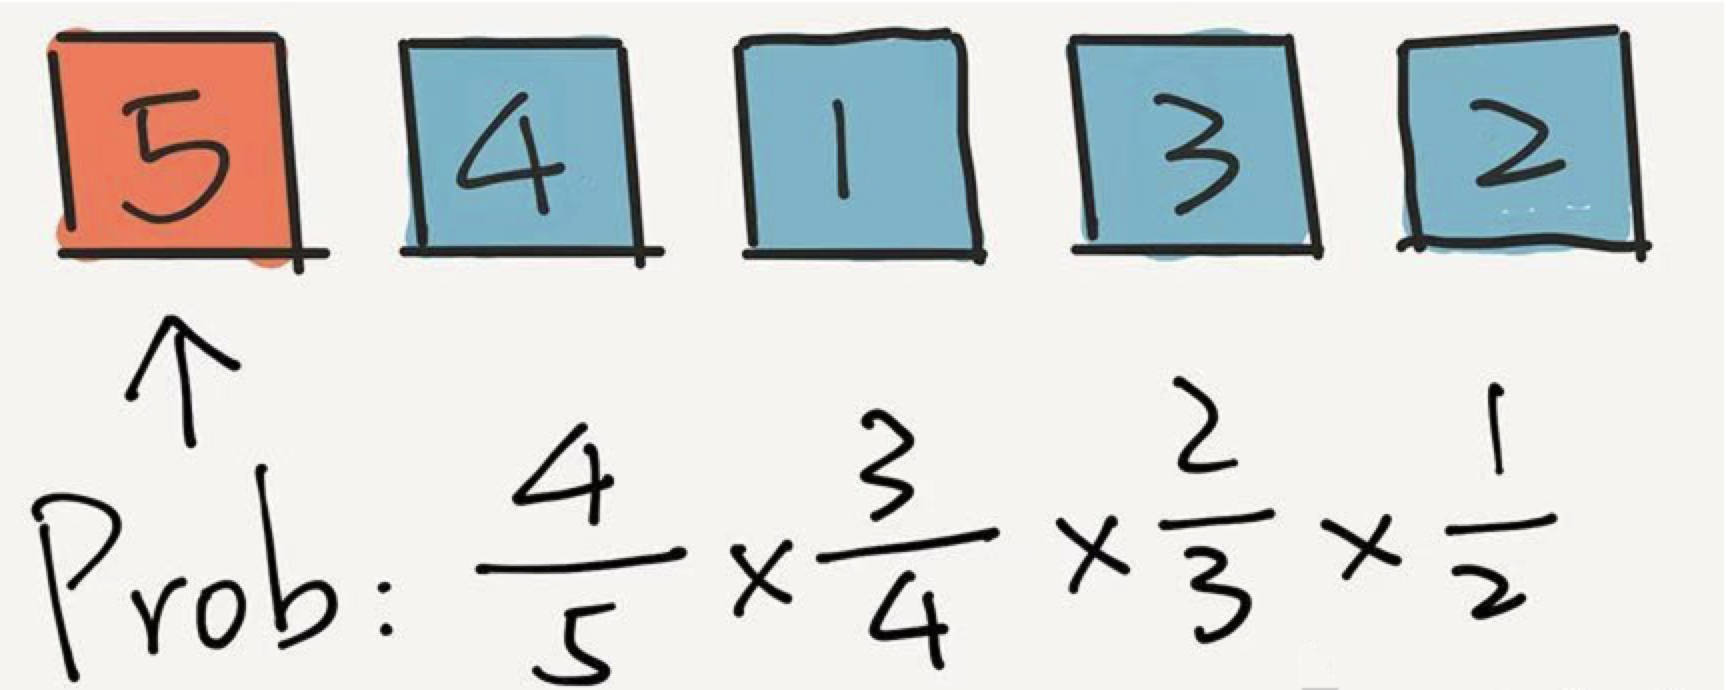 5 4 1 3 2
Prob: 4/5 × 3/4 × 2/3 × 1/2